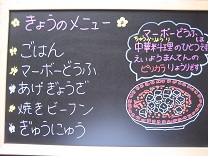 きょうのメニュー
ごはん
マーボーどうふ
あげぎょうざ
焼きビーフン
ぎゅうにゅう
マーボーどうふは
中華料理のひとつです
えいようまんてんの
ピリカラ
りょうりです